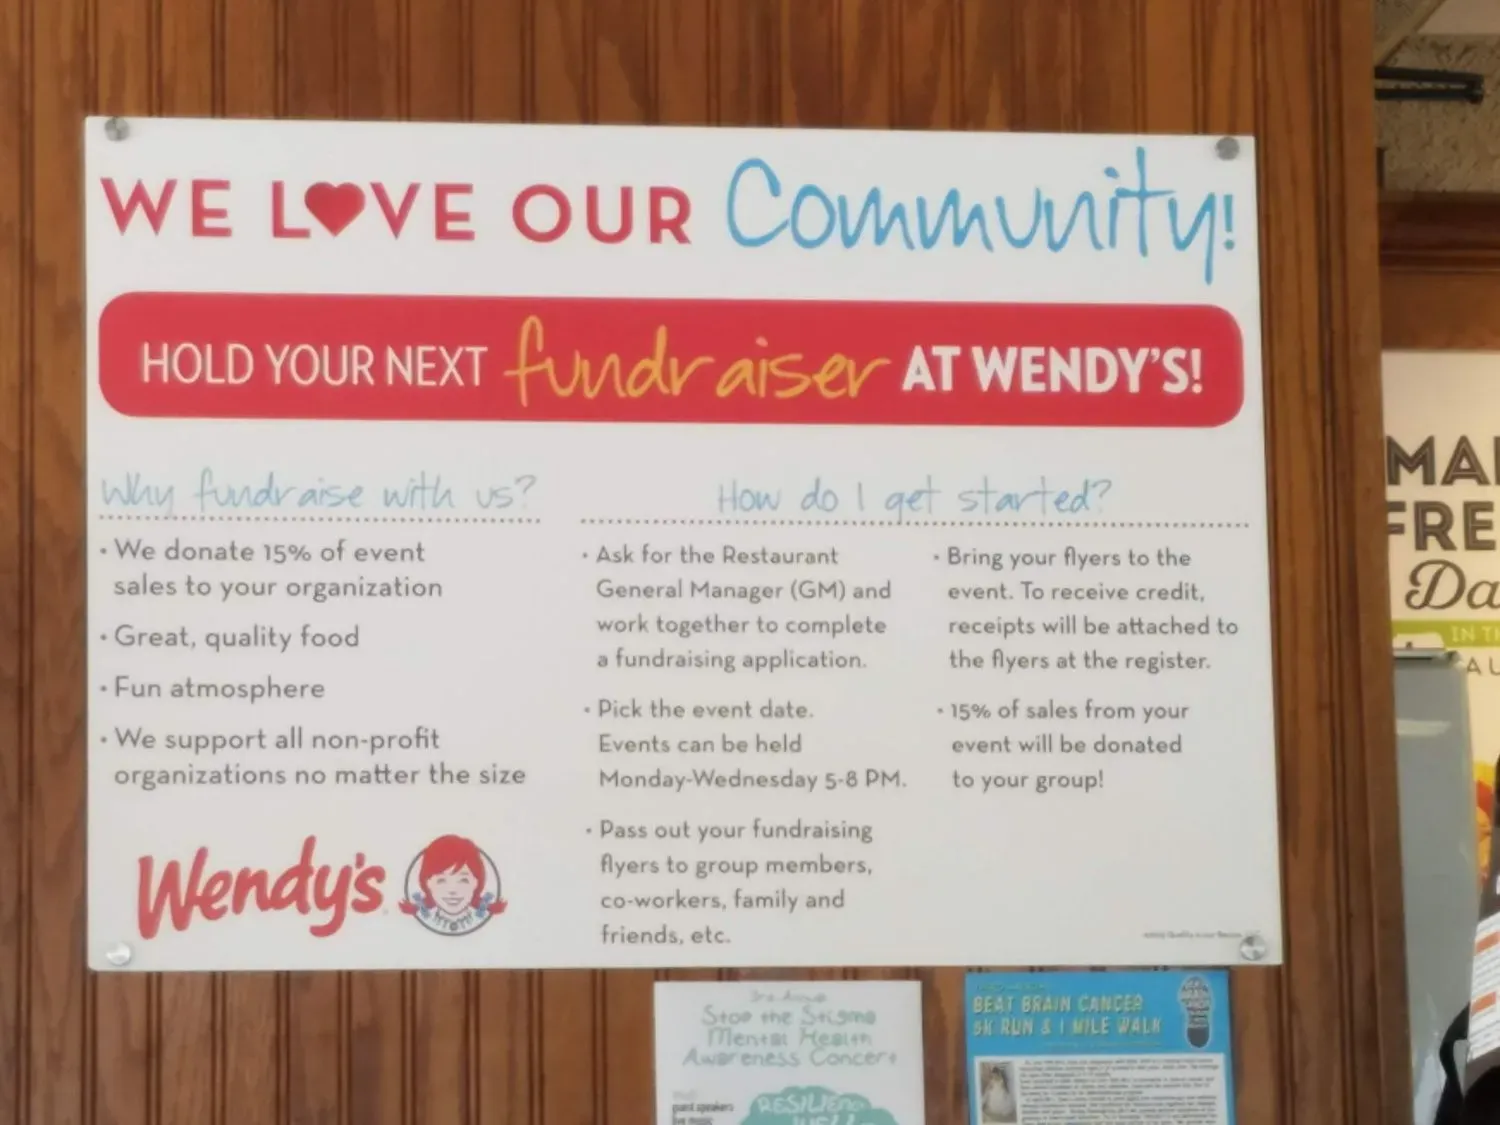 WE LOVE OUR Community!
HOLD YOUR NEXT fundraiser AT WENDY'S!
Why fundraise with us?
• We donate 15% of event
sales to your organization
• Great, quality food
• Fun atmosphere
• We support all non-profit
organizations no matter the size
Wendy's
How do I get started?
• Ask for the Restaurant
General Manager (GM) and
work together to complete
a fundraising application.
• Pick the event date.
Events can be held
Monday-Wednesday 5-8 PM.
• Pass out your fundraising
flyers to group members,
co-workers, family and
friends, etc.
• Bring your flyers to the
event. To receive credit,
receipts will be attached to
the flyers at the register.
• 15% of sales from your
event will be donated
to your group!
Stop the Stigma
Mental Health
Awareness Concert
guest speakers
live music
BEAT BRAIN CANCER
5K RUN & 1 MILE WALK
FRE
Da
IN